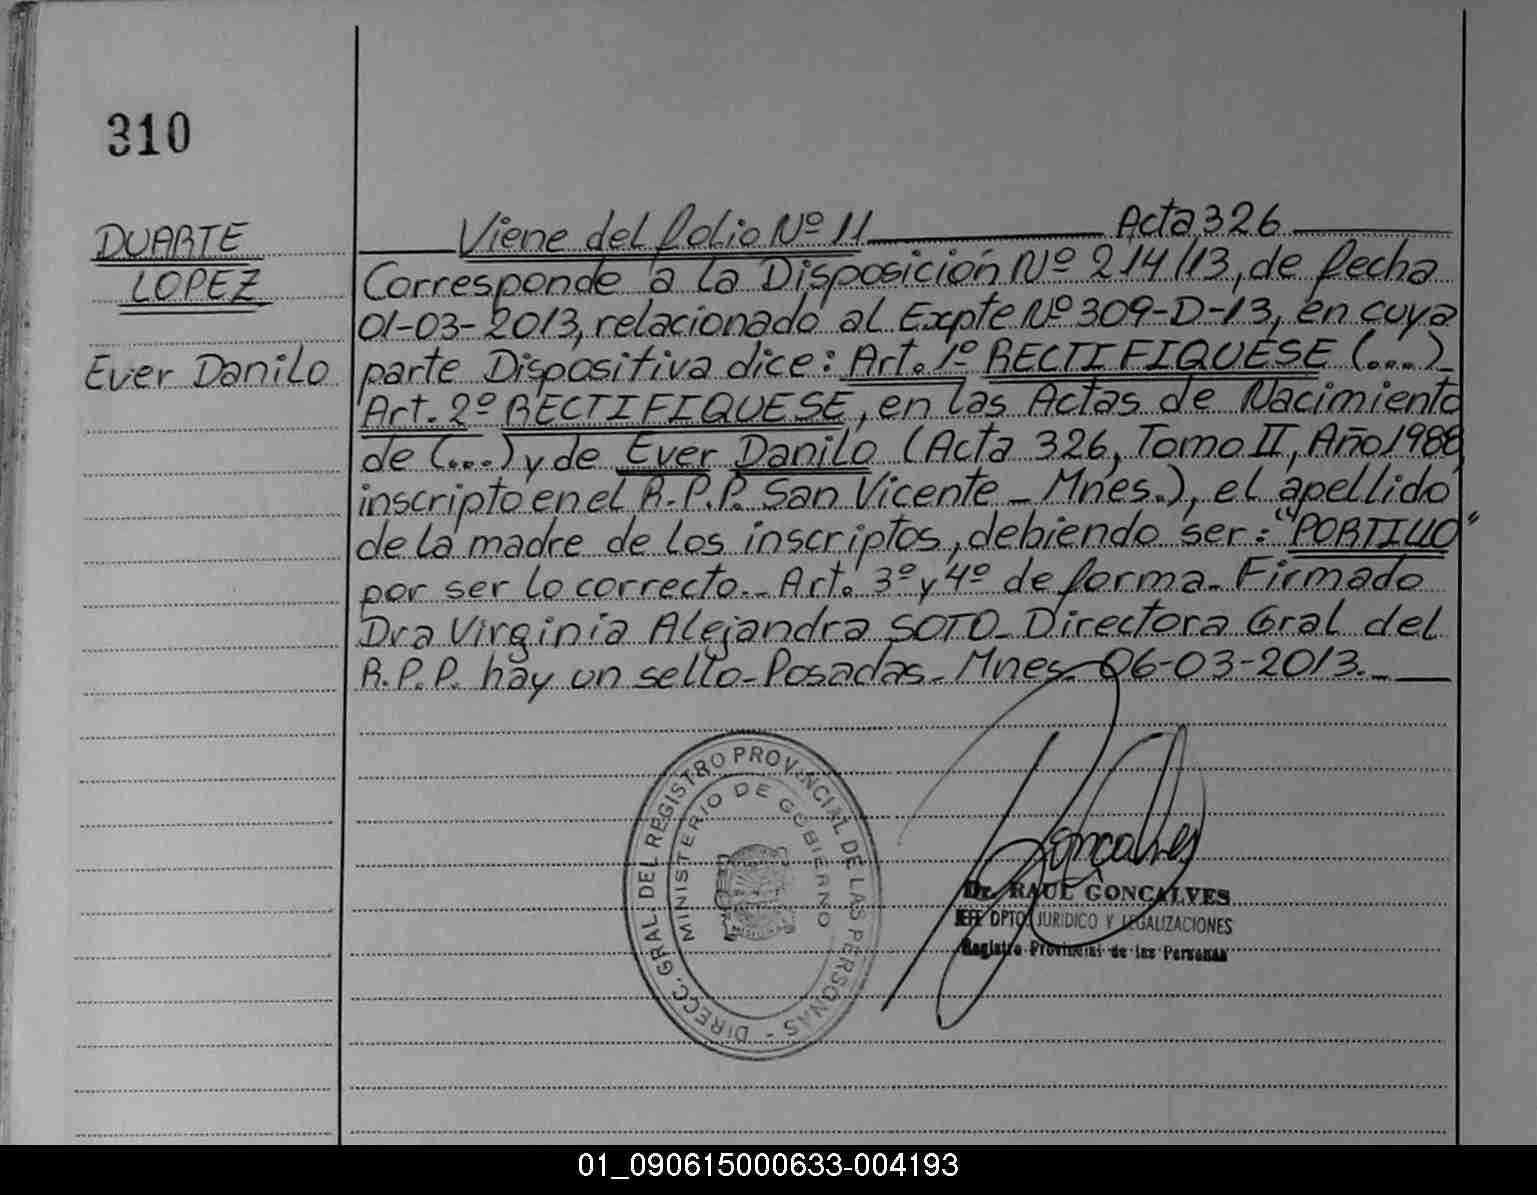 310
DUARTE
LOPEZ
Ever Danilo
Viene del folio Nº 11 Acta 326
Corresponde a la Disposición Nº 214/13, de fecha
01-03-2013, relacionado al Expte Nº 309-D-13, en cuya
parte Dispositiva dice: Art. 1º RECTIFIQUESE (....)_
Art. 2º RECTIFIQUESE, en las Actas de Nacimiento
de (....) y de Ever Danilo (Acta 326, Tomo II, Año 1988,
inscripto en el R.P.P. San Vicente _ Mnes.), el apellido
de la madre de los inscriptos, debiendo ser: "PORTILLO"
por ser lo correcto._ Art. 3º y 4º de forma_ Firmado
Dra Virginia Alejandra SOTO_ Directora Gral del
R.P.P. hay un sello_Posadas_ Mnes_ 06-03-2013._
DIRECC. GRAL. DEL REGISTRO PROVINCIAL DE LAS PERSONAS -
MINISTERIO DE GOBIERNO
MISIONES
Goncalves
Dr. RAUL GONCALVES
JEFE DPTO. JURIDICO Y LEGALIZACIONES
Registro Provincial de las Personas
01_090615000633-004193